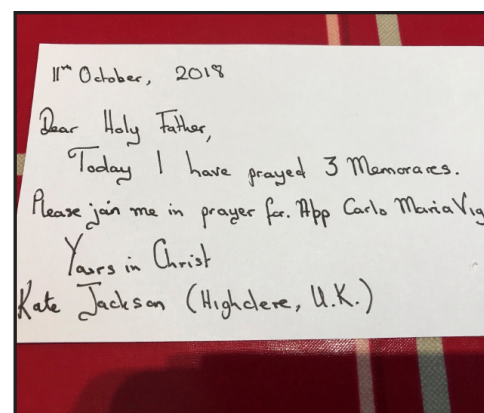 11th October, 2018
Dear Holy Father,
Today I have prayed 3 Memorares.
Please join me in prayer for. App Carlo Maria Vig
Yours in Christ
Kate Jackson (Highclere, U.K.)